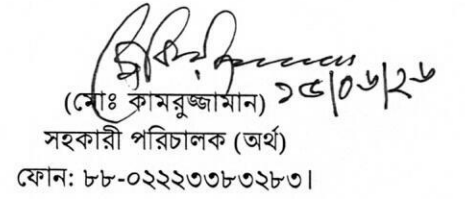 ১৫/০৬/২৬
(মোঃ কামরুজ্জামান)
সহকারী পরিচালক (অর্থ)
ফোন: ৮৮-০২২২৩৩৮৩২৮৩।